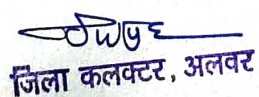 जिला कलक्टर, अलवर